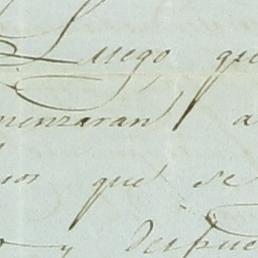 Luego que
menzaran a
los que se
y despue